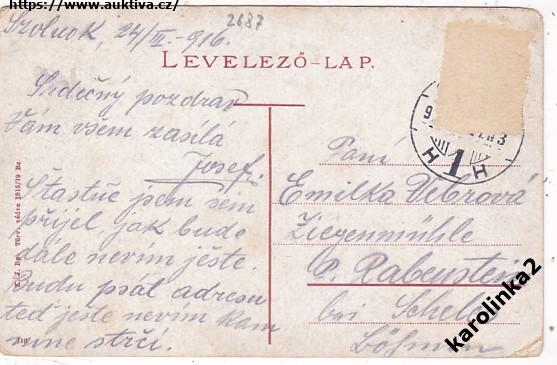 https://www.auktiva.cz/
2687
Szolnok, 24/III. 916.
LEVELEZŐ-LAP.
Srdečný pozdrav
Vám všem zasílá
Josef.
Šťastně jsem sem
přijel, jak bude
dále nevím ješte.
Budu psát adresu
teď ješte nevím kam
mne strčí.
Paní
Emilka Vebrová
Ziegenmühle
p. Rabenstein
bei Scheles
Böhmen
9
H 1 H
karolinka2